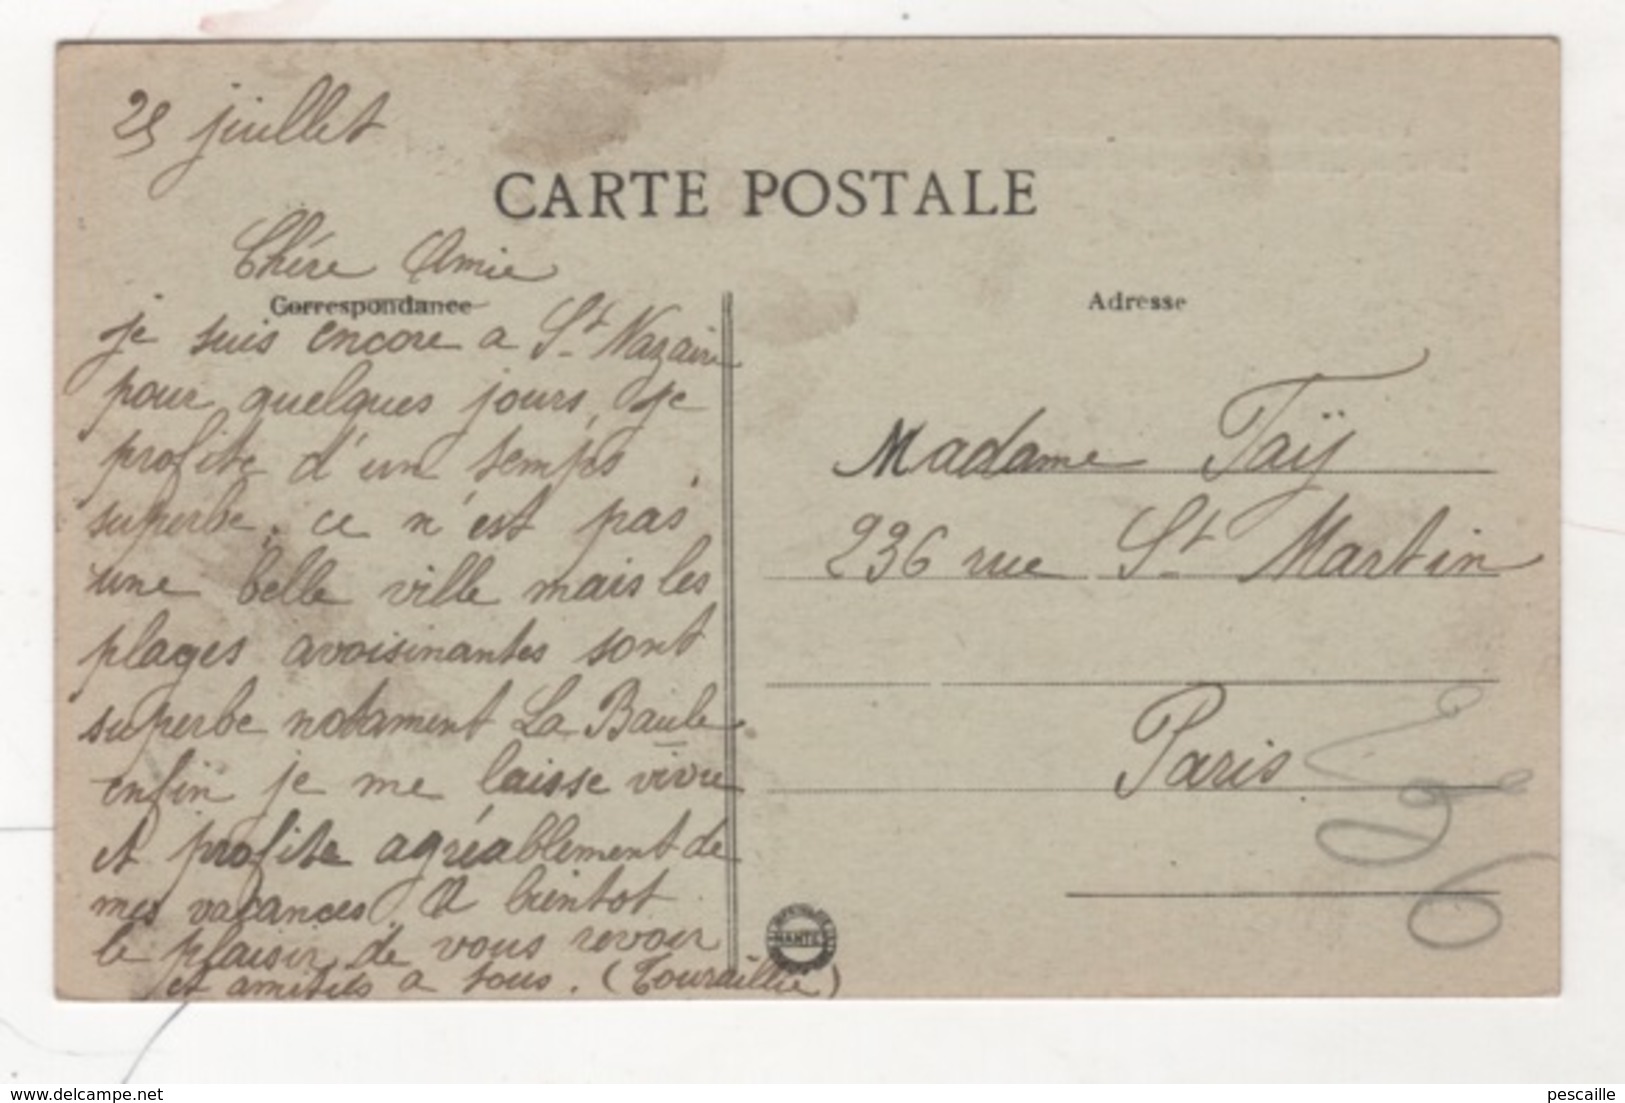 25 juillet
CARTE POSTALE
Chére Amie
Correspondance
je suis encore a St Nazaire
pour quelques jours, je
profite d'un temps
superbe, ce n'est pas
une belle ville mais les
plages avoisinantes sont
superbe notament La Baule
enfin je me laisse vivre
et profite agréablement de
mes vacances. A bientot
le plaisir de vous revoir
et amitiés a tous. (Touraillie)
Adresse
Madame Taÿ
236 rue St Martin
Paris
NANTES
delcampe.net
pescaille